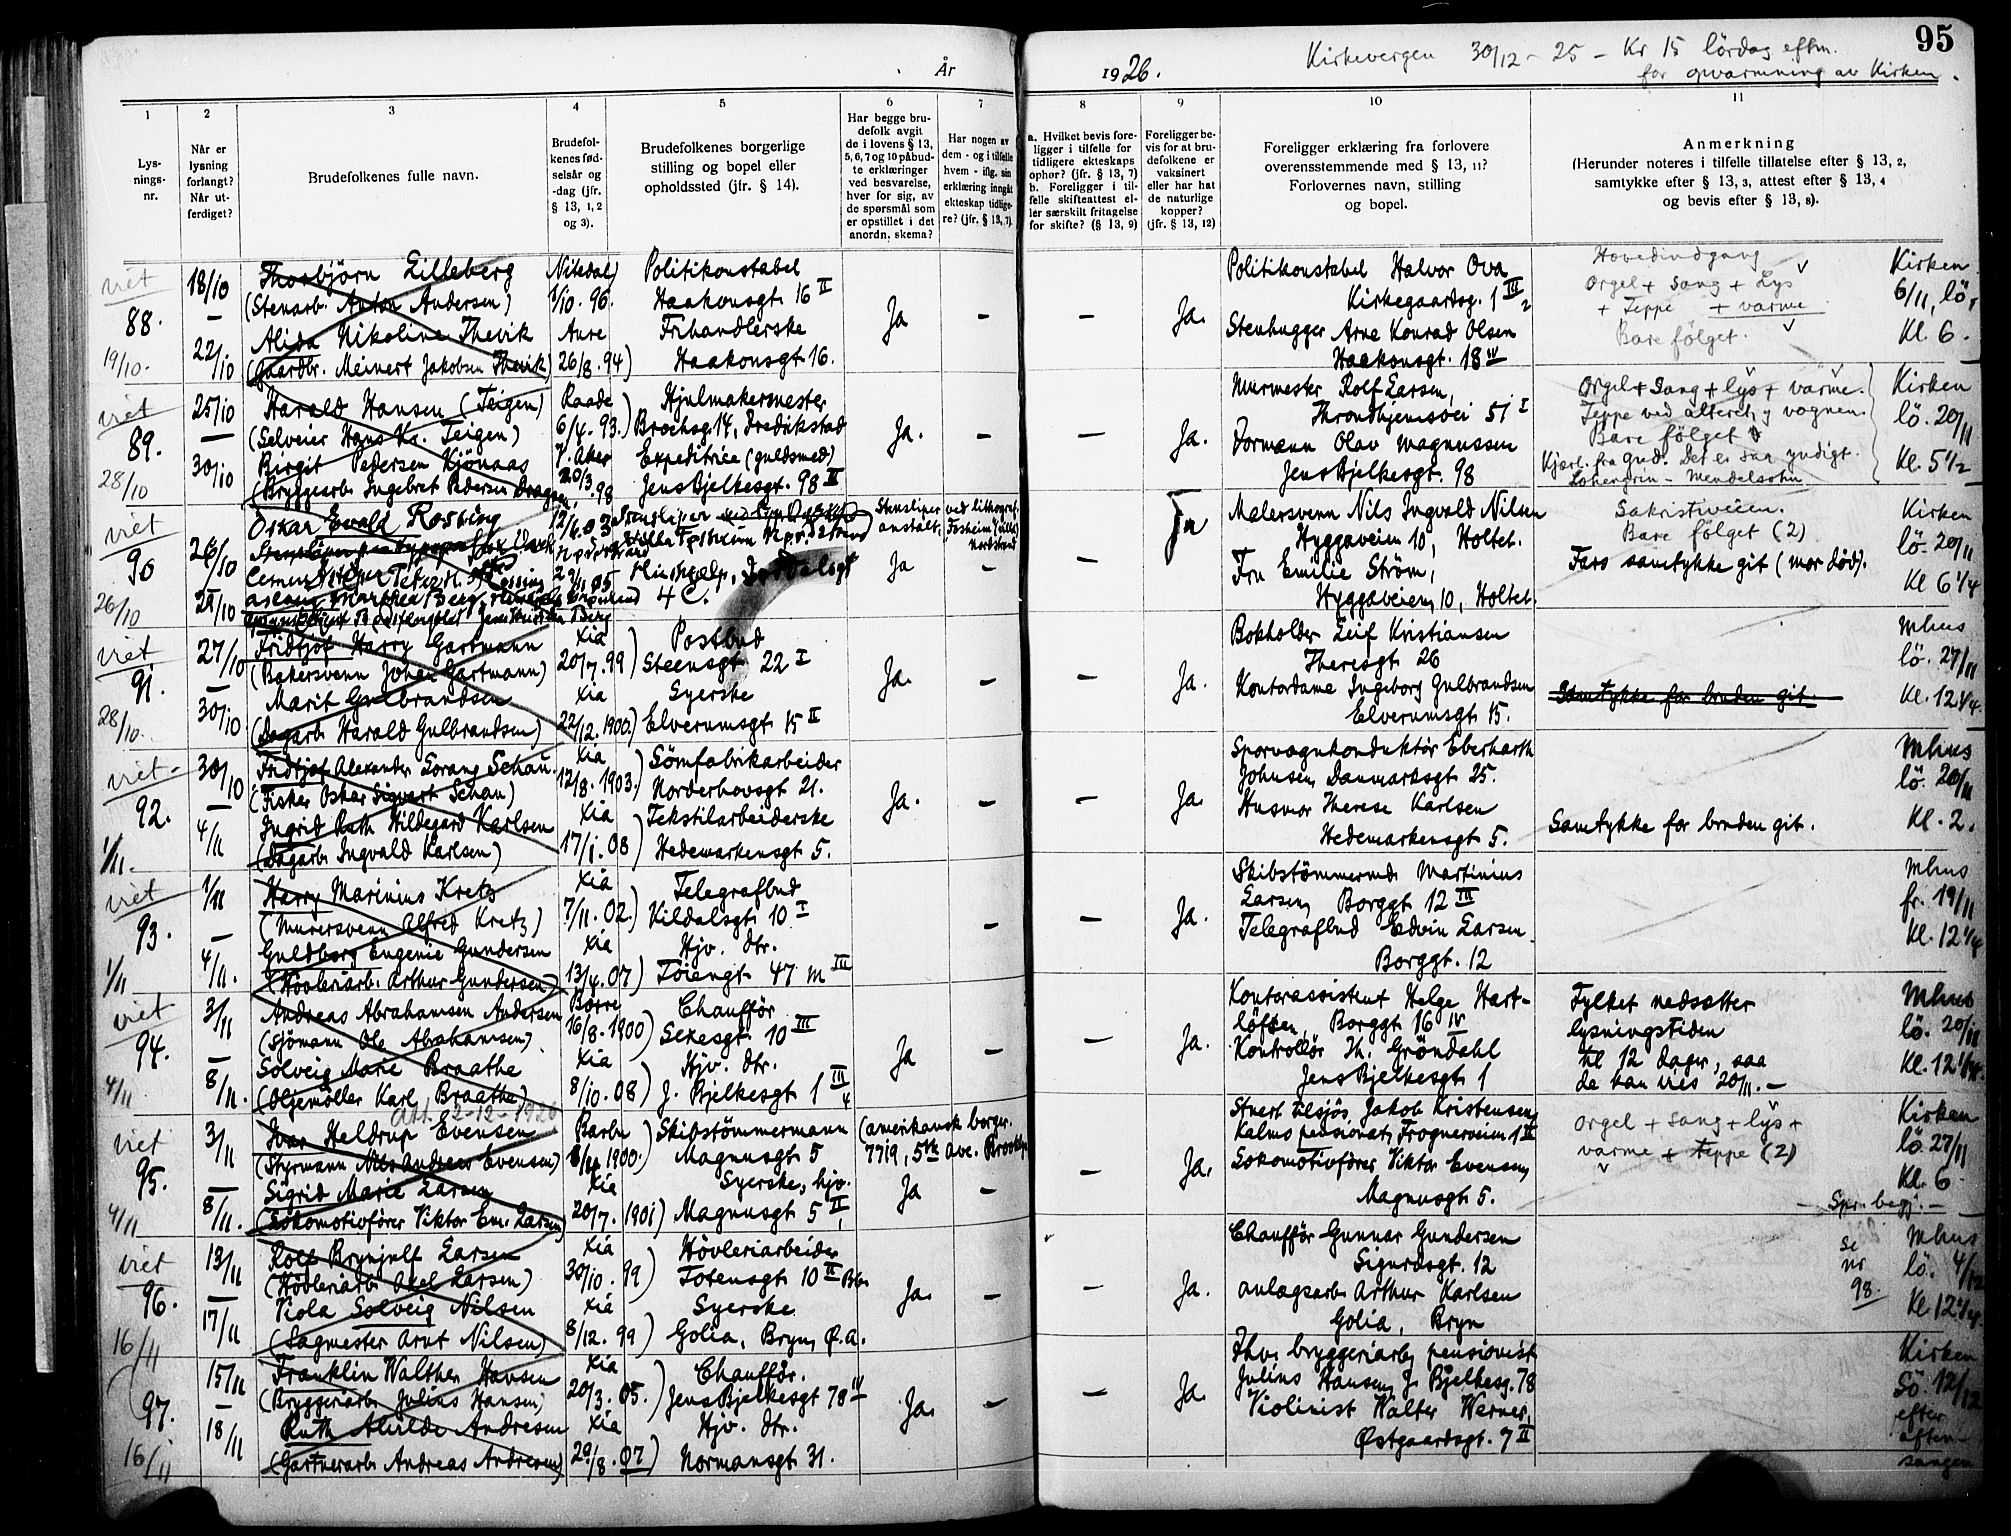 95
År 1926.
Kirkevergen 30/12 - 25 - Kr 15 lördag eftm.
for opvarmning av Kirken.
1 2 3 4 5 6 7 8 9 10 11
Lys-
nings-
nr.
Når er
lysning
forlangt?
Når ut-
ferdiget?
Brudefolkenes fulle navn.
Brudefol-
kenes fød-
selsår og
-dag (jfr.
§ 13, 1, 2
og 3).
Brudefolkenes borgerlige
stilling og bopel eller
opholdssted (jfr. § 14).
Har begge bru-
defolk avgit
de i lovens § 13,
5, 6, 7 og 10 påbud-
te erklæringer
ved besvarelse,
hver for sig, av
de spørsmål som
er opstillet i det
anordn. skema?
Har nogen av
dem - og i tilfelle
hvem - iflg. sin
erklæring inngåt
ekteskap tidlige-
re? (jfr. § 13, 7).
a. Hvilket bevis fore-
ligger i tilfelle for
tidligere ekteskaps
ophør? (jfr. § 13, 7)
b. Foreligger i til-
felle skifteattest el-
ler særskilt fritagelse
for skifte? (§ 13, 9)
Foreligger be-
vis for at bru-
defolkene er
vaksinert
eller har hat
de naturlige
kopper?
(jfr. § 13, 12)
Foreligger erklæring fra forlovere
overensstemmende med § 13, 11?
Forlovernes navn, stilling
og bopel.
Anmerkning
(Herunder noteres i tilfelle tillatelse efter § 13, 2,
samtykke efter § 13, 3, attest efter § 13, 4
og bevis efter § 13, 8).
viet
88.
19/10.
18/10
—
22/10
Thorbjörn Lilleberg
(Stenarb. Anton Andersen)
Alida Nikoline Thevik
(Gaardbr. Meinert Jakobsen Thevik)
Nitedal
1/10. 96.
Aure
26/8. 94)
Politikonstabel
Haakonsgt. 16 II
Frihandlerske
Haakonsgt. 16.
Ja
—
—
Ja.
Politikonstabel Halvor Ova
Kirkegaardsg. 1 III
Stenhugger Arne Konrad Olsen
Haakonsgt. 18 IV
Hovedindgang
Orgel + Sang + Lys
+ Teppe + varme
Bare fölget.
Kirken
6/11, lö,
Kl. 6.
viet
89.
28/10
25/10
—
30/10
Harald Hansen (Teigen)
(Selveier Hans Kr. Teigen)
Birgit Pedersen Kjönaas
(Bryggearb. Ingebret Pedersen
Raade
6/4. 93.)
V. Aker
20/3. 98
Hjulmakermester
Brochsg. 14, Fredrikstad
Expeditrice (guldsmed)
Jens Bjelkesgt. 98 II
Ja.
—
—
Ja.
Murmester Rolf Larsen,
Throndhjemsvei 51 I
Formann Olav Magnussen
Jens Bjelkesgt. 98
Orgel + Sang + lys + varme.
Teppe ved alteret, vognen.
Bare fölget
Kjærl. fra Gud. Det er saa yndigt.
Lohengrin - Mendelsohn
Kirken
lö. 20/11
Kl. 5 1/2
viet
90
26/10
26/10
29/10
Oskar Evald Rosbing
Stensliper ved lithograf.
anstalt,
Nordstrand
4 C.
Ja
—
—
Ja
Malersvenn Nils Ingvald Nilsen
Hyggaveien 10, Holtet.
Fru Emilie Ström,
Hyggaveien 10, Holtet.
Sakristiveien.
Bare fölget (2)
Fars samtykke git (mor död).
Kirken
lö. 20/11
Kl 6 1/4
viet
91.
28/10.
27/10
—
30/10
Fridtjof Harry Gartmann
(Bakersvenn Johan Gartmann)
Marit Gulbrandsen
(Dagarb. Harald Gulbrandsen)
Xia
20/7. 99)
Xia
22/12. 1900.)
Postbud
Steensgt. 22 I
Syerske
Elverumsgt. 15 II
Ja.
—
—
Ja.
Bokholder Leif Kristiansen
Theresgt. 26
Kontordame Ingeborg Gulbrandsen
Elverumsgt. 15.
Samtykke for bruden git.
Mhus
lö. 27/11
Kl. 12 1/4.
viet
92.
1/11.
30/10
—
4/11
Fridtjof Alexander Sorang Schau.
(Fisker Oskar Sigvart Schau)
Ingrid Ruth Hildegard Karlsen
(Dagarb. Ingvald Karlsen)
Xia
12/8. 1903.)
Xia
17/1. 08)
Sömfabrikarbeider
Norderhovsgt. 21.
Tekstilarbeiderske
Hedemarkensgt. 5.
Ja.
—
—
Ja.
Sporvognkonduktör Eberharth
Johnsen, Danmarksgt. 25.
Husmor Therese Karlsen
Hedemarkensgt. 5.
Samtykke for bruden git.
Mhus
lö. 20/11
Kl. 2.
viet
93.
1/11
1/11
—
4/11.
Harry Marinius Kretz
(Murersvenn Alfred Kretz)
Guldborg Eugenie Gundersen
(Hövleriarb. Arthur Gundersen)
Xia
7/11. 02.)
Xia
13/4. 07)
Telegrafbud
Kildalsgt. 10 I
Hjv. dtr.
Töiengt. 47 m III
—
—
Ja.
Skibstömmermd. Martinius
Larsen, Borggt. 12 III
Telegrafbud Edvin Larsen
Borggt. 12
Mhus
fr. 19/11
Kl. 12 1/4
viet
94.
4/11
3/11
—
8/11.
Andreas Abrahamsen Andersen
(Sjömann Ole Abrahamsen)
Solveig Marie Braathe
(Oljemöller Karl Braathe)
Borre
16/8. 1900)
Xia
8/10. 08)
Chaufför
Sexesgt. 10 III
Hjv. dtr.
J. Bjelkesgt. 1 III
Ja
—
—
Ja.
Kontorassistent Helge Hart-
löfsen, Borggt. 16 IV
Kontrollör Th. Gröndahl
Jens Bjelkesgt. 1
Fylket nedsætter
lysningstiden
til 12 dager, saa
de kan vies 20/11. —
Mhus
lö. 20/11
Kl. 12 1/4.
viet
95.
4/11
3/11
—
8/11.
Att. 2-12-1926
Ivar Heldrup Evensen
(Styrmann Nils Andreas Evensen)
Sigrid Marie Larsen
(Lokomotivförer Viktor Em. Larsen)
Barbu
1900.)
Xia
20/7. 1901)
Skibstömmermann
Magnusgt. 5
Syerske, hjv.
Magnusgt. 5 II,
(amerikansk borger.
7719, 5th Ave. Brooklyn
Ja
—
—
Ja.
Stuert tilsjös Jakob Kristensen,
Kalms pensionat, Frognerveien 1 II
Lokomotivförer Viktor Evensen,
Magnusgt. 5.
Orgel + Sang + lys +
varme + teppe (2)
Kirken
lö. 27/11
Kl. 6
viet
96.
16/11
13/11
—
17/11
Rolf Brynjulf Larsen
(Hövleriarb. Axel Larsen)
Viola Solveig Nilsen
(Sagmester Arnt Nilsen)
Xia
30/10. 99)
Xia
8/12. 99)
Hövleriarbeider
Totensgt. 10 II
Syerske
Golia, Bryn, Ø. A.
Ja.
—
—
Ja.
Chaufför Gunnar Gundersen
Sigurdsgt. 12
Anlægsarb. Arthur Karlsen
Golia, Bryn
Se
nr
98.
Mhus
lö. 4/12
Kl. 12 1/4.
97.
16/11
15/11
—
18/11
Franklin Walther Hansen
(Bryggeriarb. Julius Hansen)
Ruth Alvilde Andresen
(Gartnerarb. Andreas Andresen)
Xia
20/3. 05.)
Xia
29/8. 07)
Chaufför.
Jens Bjelkesgt. 78 IV
Hjv. dtr.
Normansgt. 31.
Ja.
—
—
Ja.
Fhv. bryggeriarb., pensionist
Julius Hansen, J. Bjelkesg. 78
Violinist Walter Werner,
Østgaardsgt. 7 II
Kirken
Sö. 12/12
efter
aften-
sangen